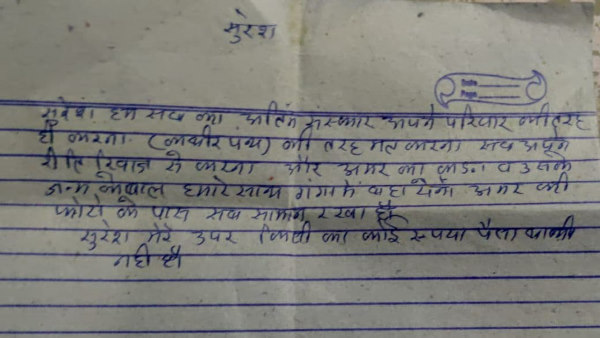 सुरेश
Date
Page
सुरेश हम सब का अतिम संस्कार अपने परिवार की तरह
ही करना (कबीर पन्थ) की तरह मत करना सब अपने
रीति रिवाज से करना और अमर का कडा व उसके
जन्म के बाल हमारे साथ गंगा में बहा देना अमर की
फोटो के पास सब सामान रखा है
सुरेश मेरे उपर किसी का कोई रूपया पैसा बाकी
नही है।